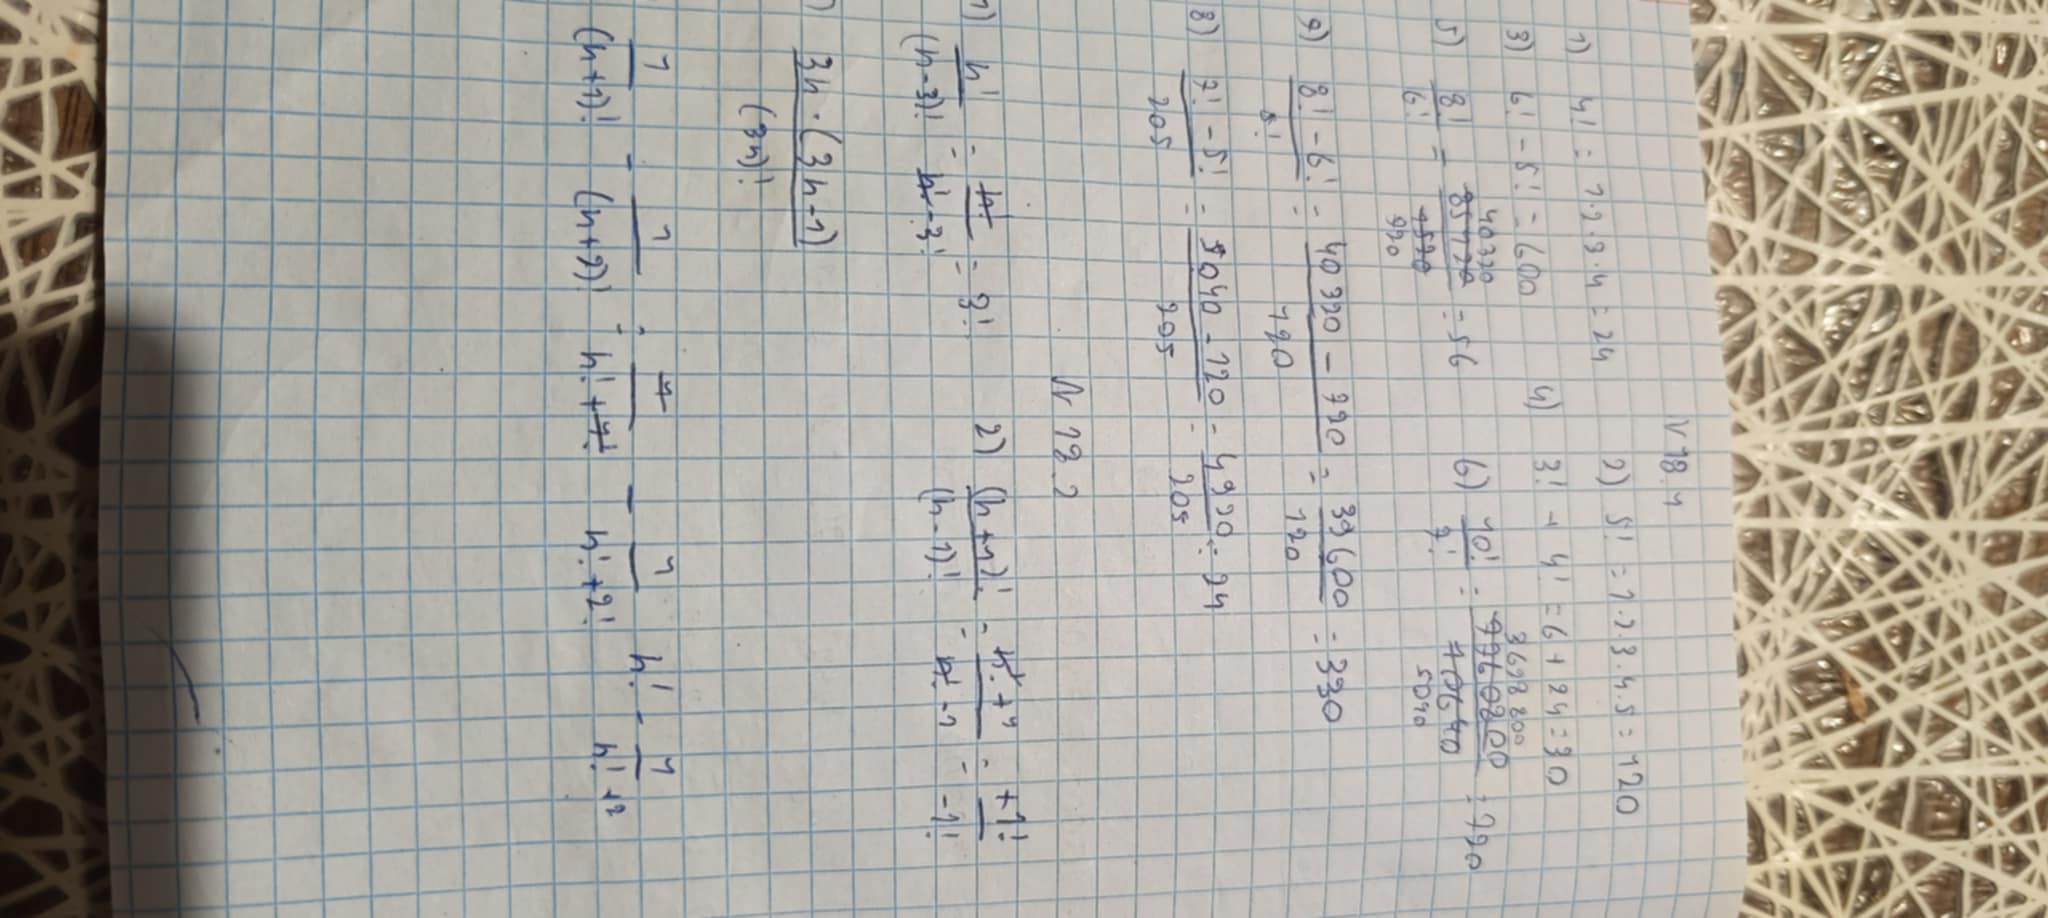 N 18.1
1) 4! = 1·2·3·4 = 24 2) 5! = 1·2·3·4·5 = 120
3) 6! - 5! = 600 4) 3! + 4! = 6 + 24 = 30
5) 8!/6! = 40320/720 = 56 6) 10!/7! = 3628800/5040 = 720
7) (8! - 6!)/5! = (40320 - 720)/120 = 39600/120 = 330
8) (7! - 5!)/205 = (5040 - 120)/205 = 4920/205 = 24
N 18.2
1) n!/(n-3)! = n!/(n!-3!) = 3! 2) (n+1)!/(n-1)! = (n!+1)/(n!-1) = +1!/-1!
) 3n·(3n-1)/(3n)!
1/(n+1)! - 1/(n+2)! = 1/(n!+1!) - 1/(n!+2!) n! - 1/(n!+2